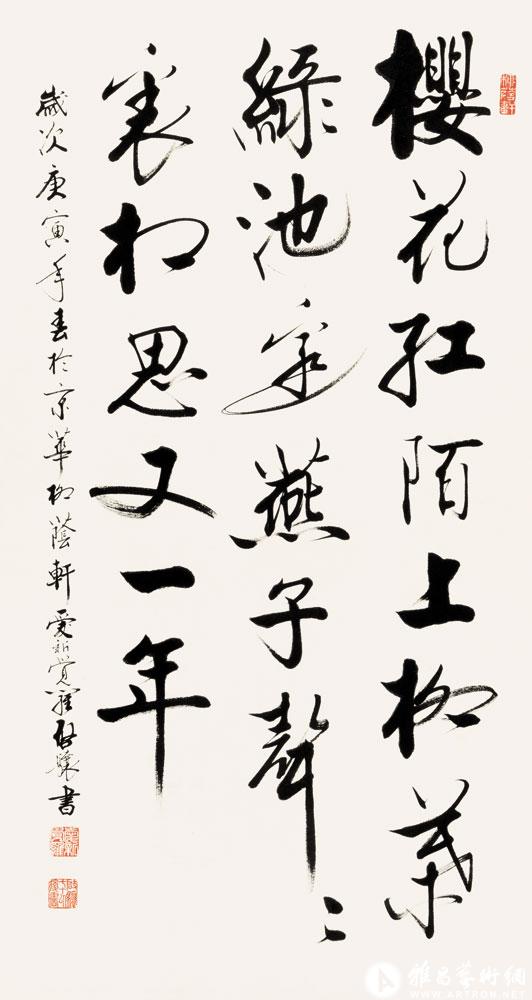 櫻花紅陌上柳葉
綠池邊燕子聲〻
裏相思又一年
歲次庚寅年春於京華柳蔭軒愛新覺羅啓驤書
雅昌藝術網
WWW.ARTRON.NET